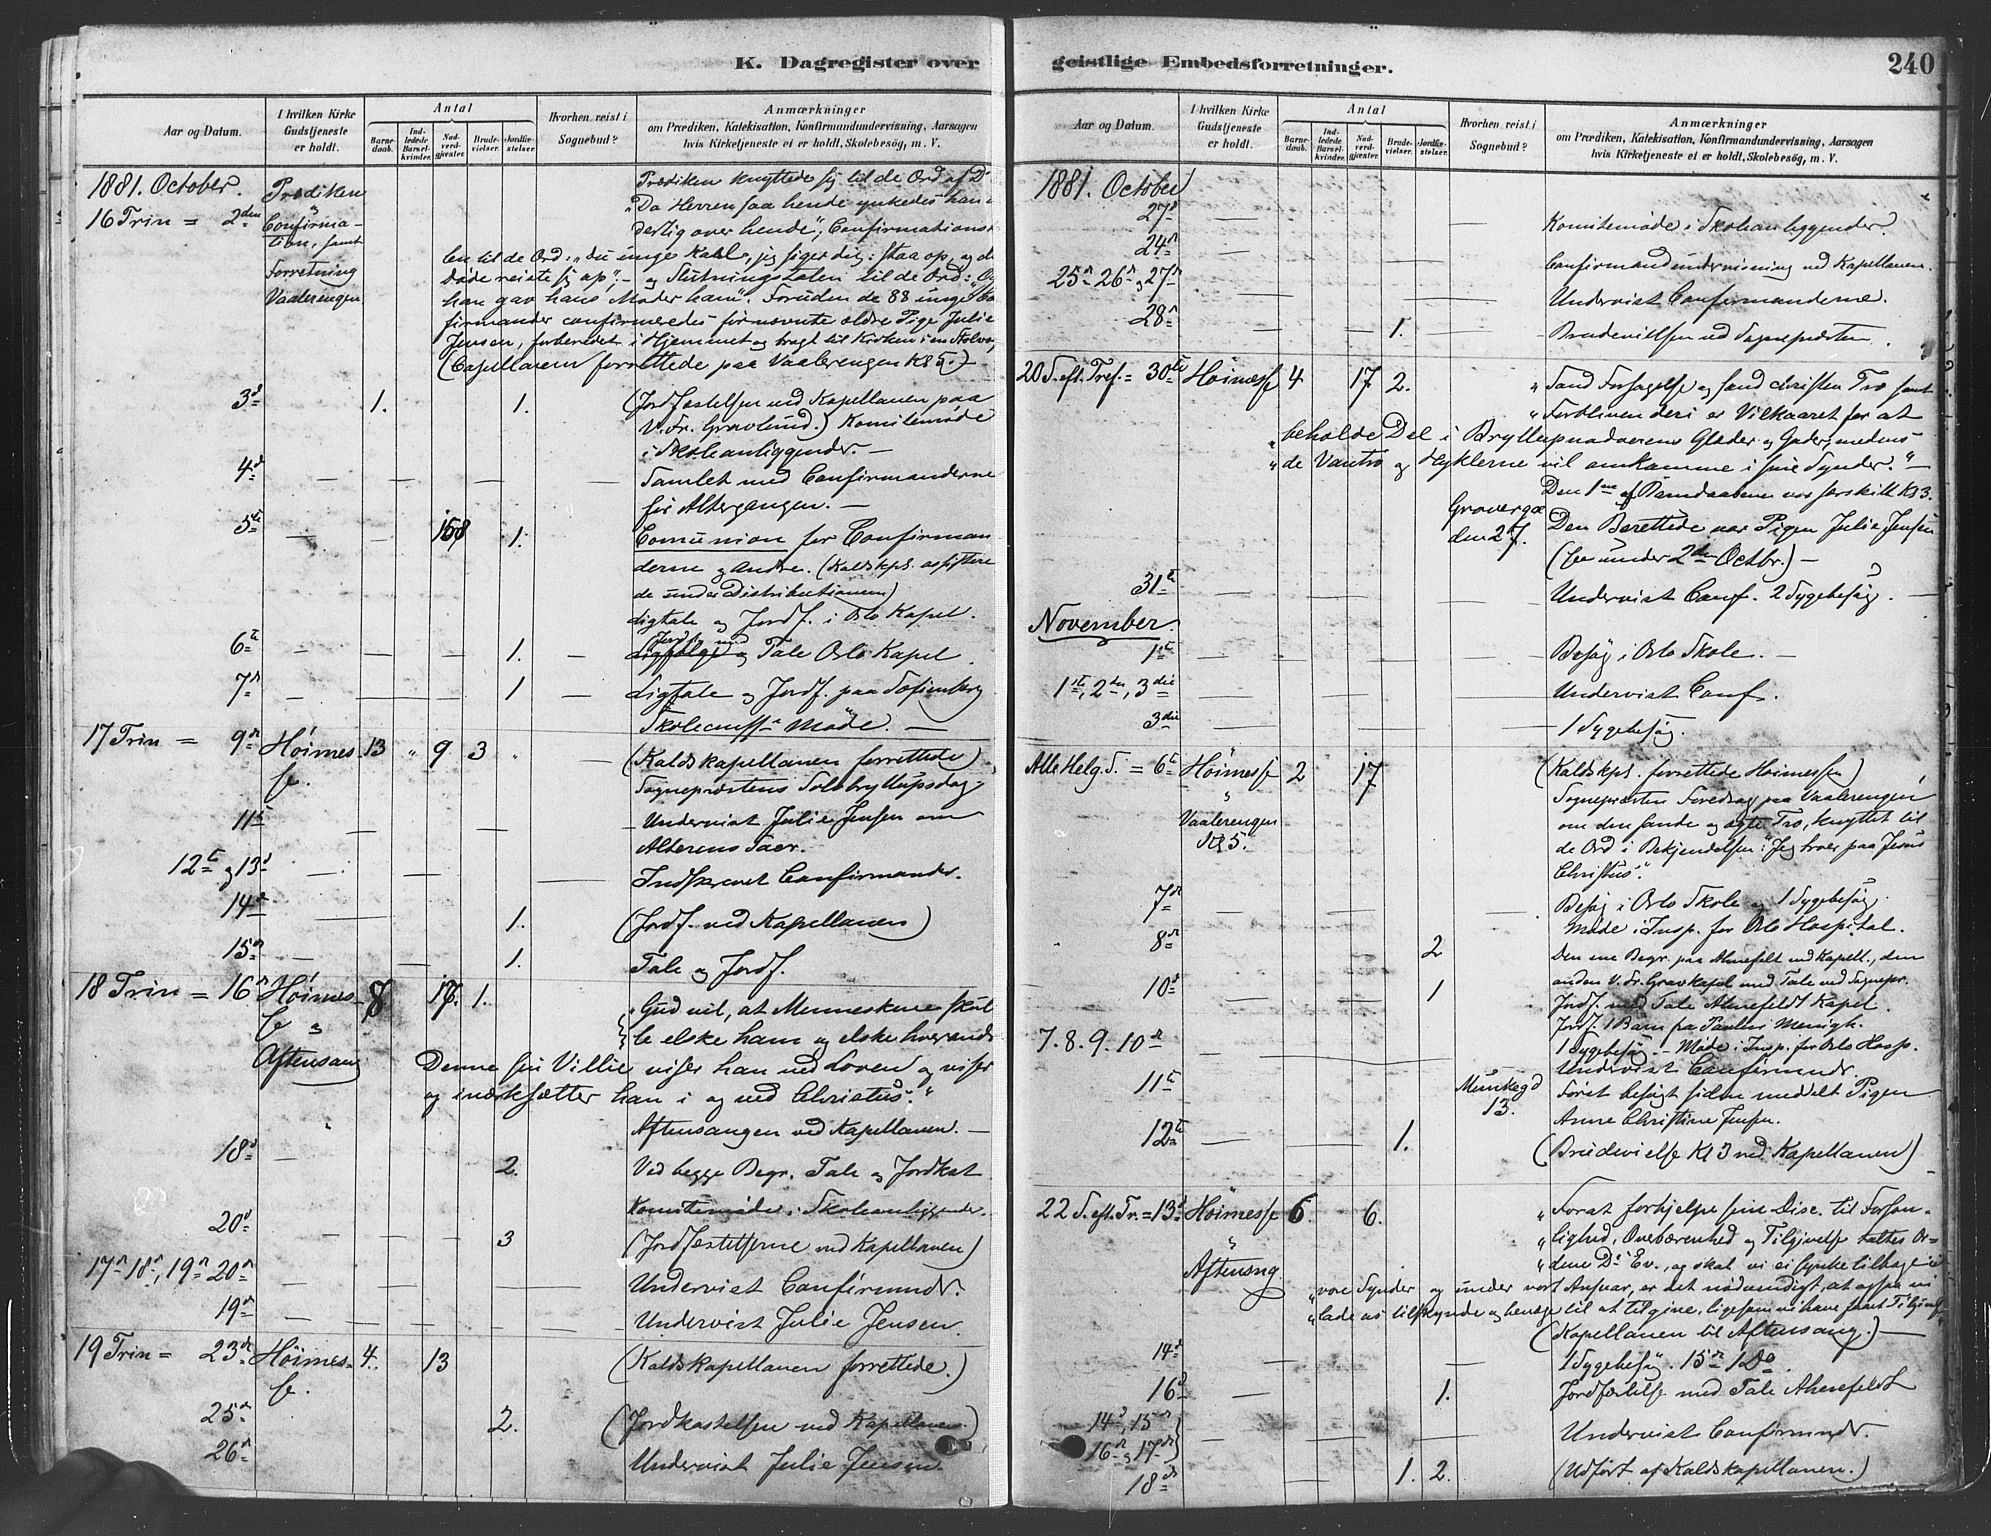 K. Dagregister over
Aar og Datum.
I hvilken Kirke Gudstjeneste er holdt.
Antal
Barnedaab.
Indledede Barselkvinder.
Nadverdgjæster.
Brudevielser.
Jordfæstelser.
Hvorhen reist i Sognebud?
Anmærkninger
om Prædiken, Katekisation, Konfirmandundervisning, Aarsagen
hvis Kirketjeneste ei er holdt, Skolebesög, m. V.
1881. October.
16 Trin = 2den
Prædiken
Confirma-
tion, samt
Forretning
Vaalerengen
Prædiken knyttede sig til de Ord af
"Da Herren saa hende ynkedes han
derlig over hende", Confirmations
len til de Ord: "du unge Karl, jeg siger dig: staa op, og
døde reiste sig op", – og Slutningstalen til de Ord:
han gav hans Moder ham". Foruden de 88 unge
firmander confirmeredes fornævnte ældre Pige Julie
Jensen, forberedet i Hjemmet og bragt til Kirken i en
(Capellanen forrettede paa Vaalerengen Kl 5.)
3d 1. 1. (Jordfæstelsen ved Kapellanen paa
V. Fr. Gravlund.) Komitemøde
i Skoleanliggender. –
4d Samlet med Confirmanderne
før Altergangen. –
5te 158 1. Comunion for Confirman-
derne og Andre. (Kaldskpl. assistere
de under Distributionen)
Ligtale og Jordf. i Oslo Kapel.
6te 1. Jordf. med
Tale Oslo Kapel.
7n 1 Ligtale og Jordf. paa Sofienberg
Møde. –
17 Trin = 9n Höimes- 13 " 9 3 (Kaldskapellanen forrettede)
se. Sognepræstens Sølvbryllupsdag.
11te Undervist Julie Jensen om
Alterens
12te og 13d Indskrevet Confirmander.
14d 1. (Jordf. ved Kapellanen)
15n 1. Tale og Jordf.
18 Trin = 16n Höimes- 8 17. 1. "Gud vil, at Menneskene skul
se og le elske ham og elske hverandr
Aftensang Denne sin Villie viser han ved Loven og viser
og iværksætter han i og ved Christus."
Aftensangen ved Kapellanen. –
18d 2. Ved begge Begr. Tale og Jordkast
Komitemøde i Skoleanliggender.
20d 3 (Jordfæstelserne ved Kapellanen)
17n 18n, 19n 20n Undervist Confirmndr.
19n Undervist Julie Jensen.
19 Trin = 23de Höimes- 4. 13 (Kaldskapellanen forrettede.)
se.
25n 2. (Jordkastelsen ved Kapellanen)
26n Undervist Julie Jensen.
geistlige Embedsforretninger.
240
Aar og Datum.
I hvilken Kirke Gudstjeneste er holdt.
Antal
Barnedaab.
Indledede Barselkvinder.
Nadverdgjæster.
Brudevielser.
Jordfæstelser.
Hvorhen reist i Sognebud?
Anmærkninger
om Prædiken, Katekisation, Konfirmandundervisning, Aarsagen
hvis Kirketjeneste ei er holdt, Skolebesög, m. V.
1881. October
27d Komitemøde i Skoleanliggender.
24n Confirmandundervisning ved Kapellanen.
25n 26n og 27n Undervist Confirmanderne.
28n 1. Brudevielsen ved Sognepræsten.
20 S. eft. Tref. = 30te Höimesse 4 17 2. "Sand Forsagelse og sand christen Tro samt
"Forbliven deri er Vilkaaret for at
"beholde Del i Bryllupnadverens Glæder og Goder, medens
"de Vantro og Hyklerne vil omkomme i sine Synder."
Den 1ne af var særskilt Kl 3.
den 27. Den Berettede var Pigen Julie Jensen
(se under 2den Octbr.) –
31te Undervist Conf. 2 Sygebesög. –
November.
1ste Besög i Oslo Skole. –
1ste, 2den, 3die Undervist Conf.
3die 1 Sygebesög.
Alle Helg. S. = 6te Höimesse 2 17 (Kaldskpl. forrettede Höimessen)
Vaalerengen Sognepræsten Foredrag paa Vaalerengen
Kl 5. om den sande og ægte Tro, knyttet til
de Ord i Bekjendelsen: "Jeg troer paa Jesus
Christus".
7de Besög i Oslo Skole og 1 Sygebesög.
Møde i Insp. for Oslo Hospital.
8n 2 Den ene Begr. paa ved Kapell., den
anden V. Fr. Gravkapel med Tale ved Sognepr.
10d 1 Jordf. med Tale Kapel.
Jordf. 1 Barn fra Paulus Menigh.
1 Sygebesög – Møde i Insp. for Oslo Hosp.
7. 8. 9. 10n Undervist Confirmndr.
11te Munkegd 13. Først besøgt siden meddelt Pigen
Anne Christine Jensen.
12te 1. (Brudevielse Kl 3 ved Kapellanen)
22 S. eft. Tr. = 13d Höimesse 6. 6. "Forat forhjelpe sine Disc. til Forson-
" "lighed, Overbærenhed og Tilgivelse taltes Or-
Aftensng. "dene Ds Ev., og skal vi ei synke tilbage i
"vore Synder og under vort Ansvar, er det nødvendigt, at ogsaa vi
"lade os tilskynde og bevæge til at tilgive, ligesom vi have faaet Tilgivelse"
(Kapellanen til Aftensang.) –
14d 1 Sygebesög. 15n 1 Do.
16d 1. Jordfæstelse med Tale
14d, 15n
16n og 17n Undervist Confirmndr.
18de 1. 2. (Udført af Kaldskapellanen.)